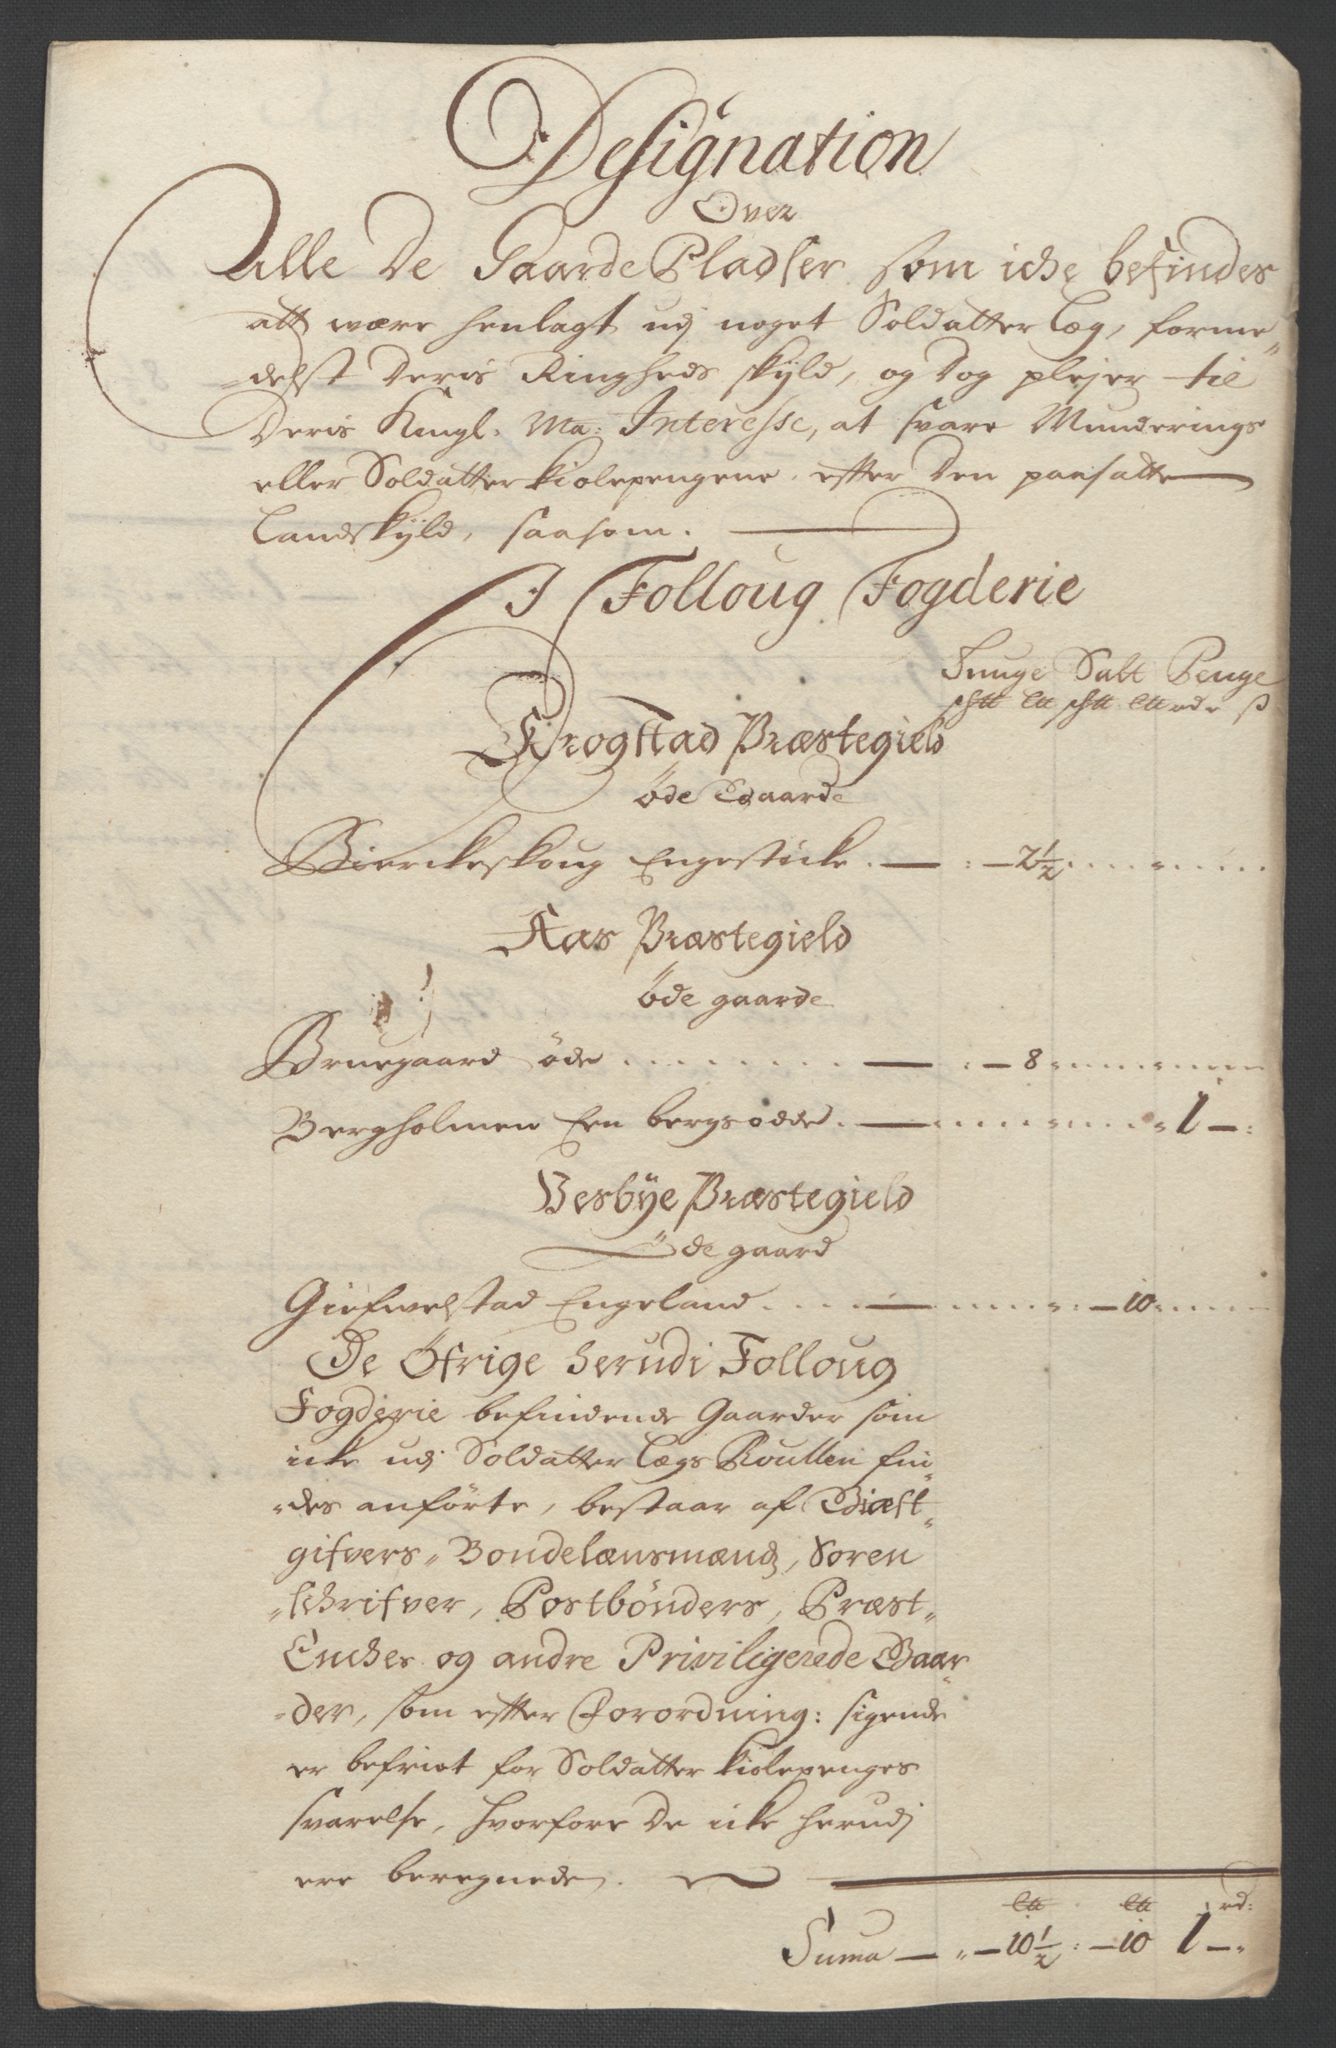 Designation
Over
Alle De Gaarde Pladser som iche befindes
att wære henlagt udj noget Soldatter Læg, forme„
„delst Deris Ringheds skyld, og Dog plejer til
Deris Kongl: Ma: Interesse, at svare Munderings
eller Soldatter kiolepengene efter Den paasatte
Landskyld, saasom.
I Folloug Fogderie
Tunge Salt Penge
schtt Ltt schtt Ltt rdr ß
Krogstad Præstegield
Öde Gaarde
Bierckeskoug Engestöcke . — : — 2½
Aas Præstegield
Öde gaarde
Bruegaard öde . . . — : — 8
Bergholmen Een bergsodde . — 1 — :
Vesbÿe Præstegield
Öde gaard
Giefwelstad Engeland . . . — : — 10
De Öfrige herudi Folloug
Fogderie befindende Gaarder som
icke udj Soldatter Lægs Roullen fin„
„des anförte, bestaar af Giæst„
gifvers„ Bondelænsmænds, Soren
„schrifver, Postbönders, Præst„
Enches og andre Priviligerede Gaar„
„der, som efter Forordning: sigende
er befriet for Soldatter kiolepenges
svarelse, hvorfore De icke herudj
ere beregnede.
Ltt Ltt rd:
Suma — „ — 10½ : — 10 1 — „